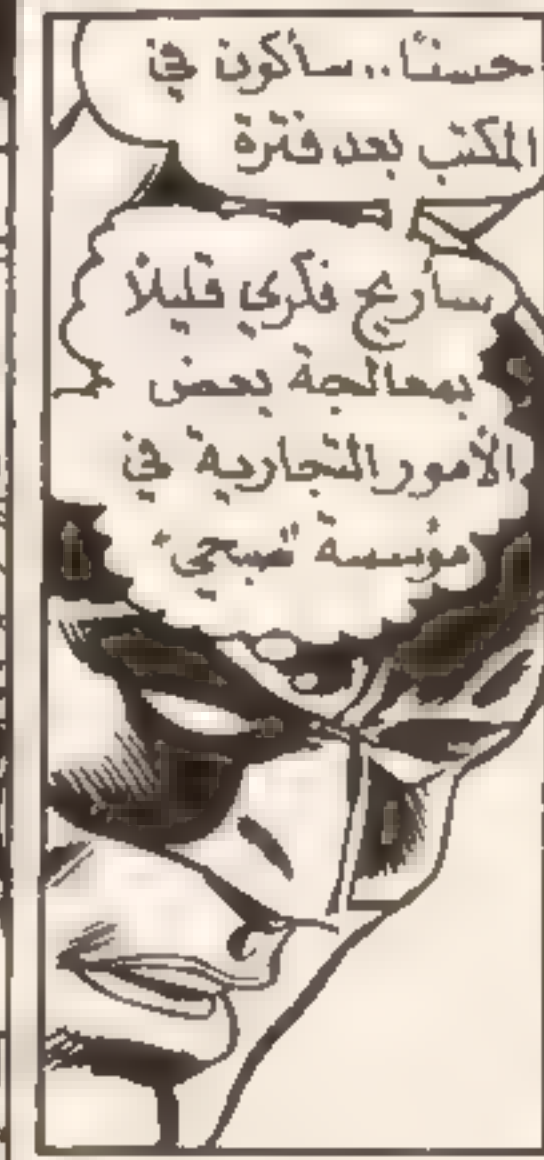 حسنًا.. سأكون في
المكتب بعد فترة
سأريح فكري قليلًا
بمعالجة بعض
الأمور التجارية في
مؤسسة "صبحي"